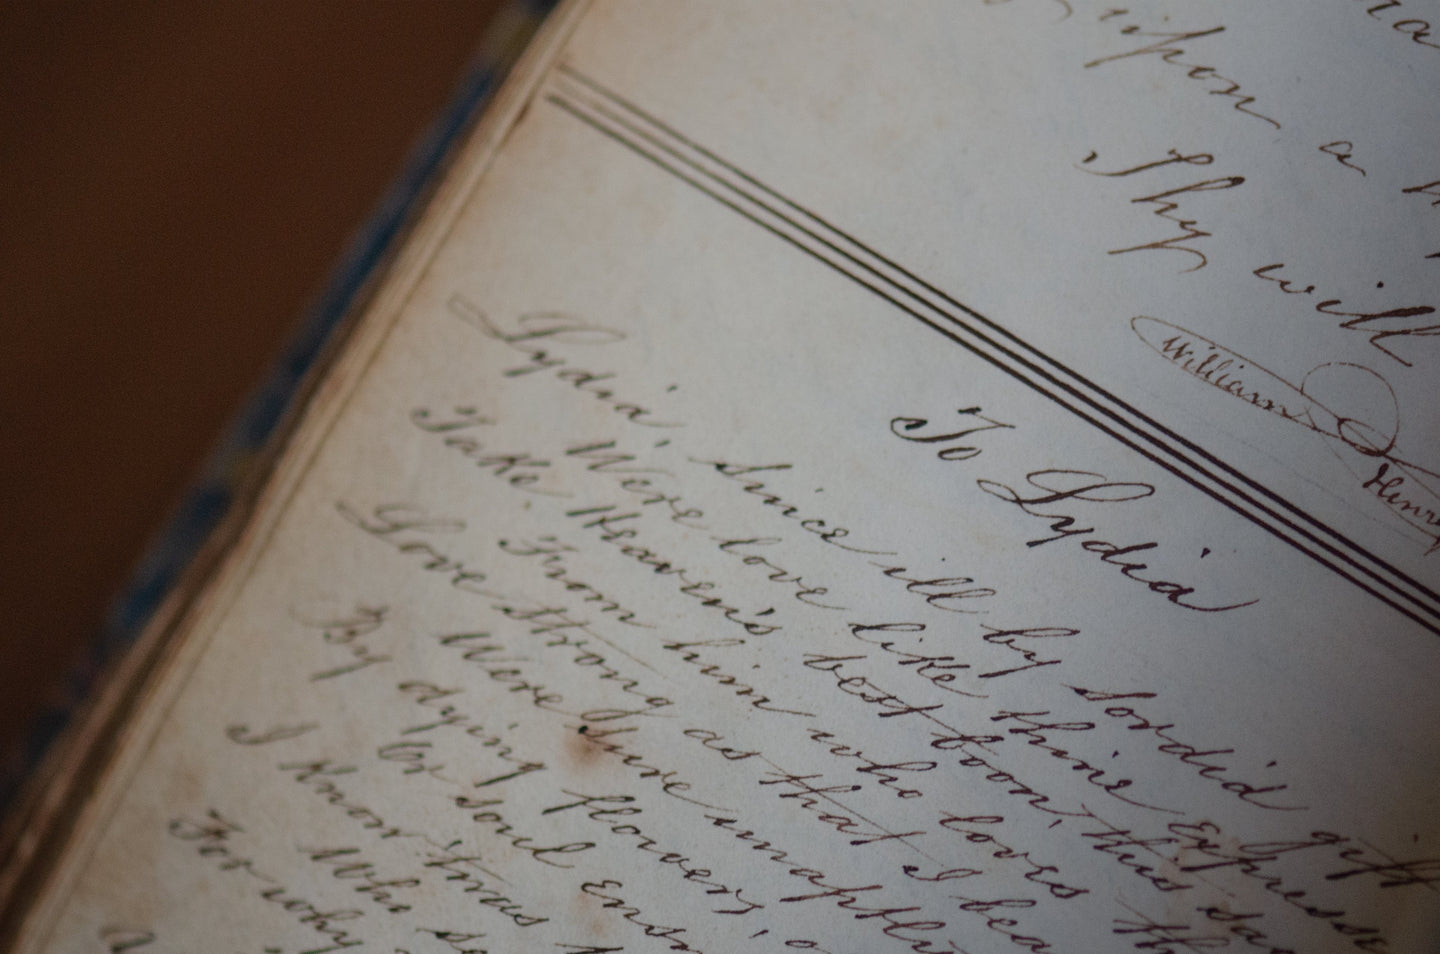 upon a
Thy will
William Henry
To Lydia
Lydia, since ill by sordid gift
Were love like thine express
Take Heaven's best boon, this
From him who loves
Love strong as that I bea
Were Sure
By dying flowers,
Or soul
I know 'twas
Who
For why